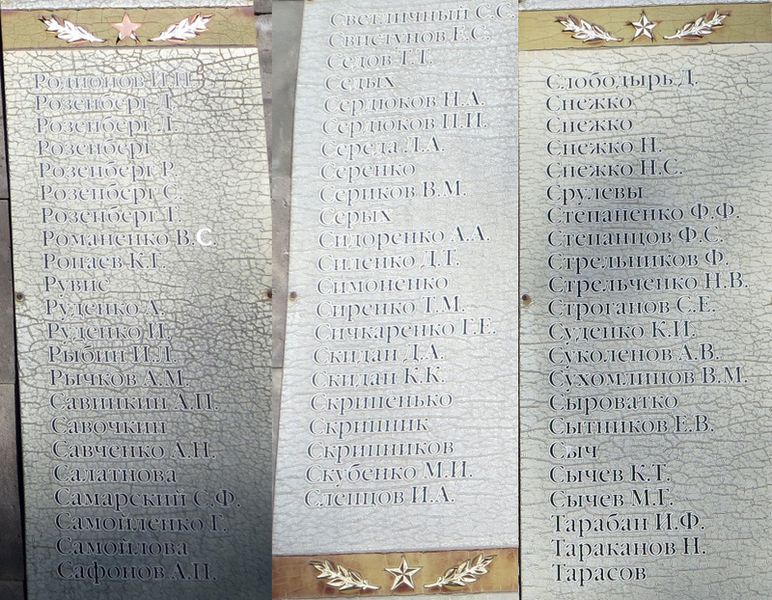 Родионов И.П.
Розенберг Д.
Розенберг Л.
Розенберг
Розенберг Р.
Розенберг С.
Розенберг Т.
Романенко В.С.
Ропаев К.Г.
Рувис
Руденко А.
Руденко И.
Рыбин И.Д.
Рычков А.М.
Савинкин А.П.
Савочкин
Савченко А.Н.
Салатнова
Самарский С.Ф.
Самойленко Г.
Самойлова
Сафонов А.П.
Светличный С.С.
Свистунов Е.С.
Седов Т.Т.
Седых
Сердюков Н.А.
Сердюков П.И.
Середа Л.А.
Серенко
Сериков В.М.
Серых
Сидоренко А.А.
Силенко Д.Т.
Симоненко
Сиренко Т.М.
Сичкаренко Г.Е.
Скидан Д.А.
Скидан К.К.
Скрипенько
Скрипник
Скрипников
Скубенко М.И.
Слепцов И.А.
Слободырь Д.
Снежко
Снежко
Снежко Н.
Снежко Н.С.
Срулевы
Степаненко Ф.Ф.
Степанцов Ф.С.
Стрельников Ф.
Стрельченко Н.В.
Строганов С.Е.
Суденко К.И.
Суколенов А.В.
Сухомлинов В.М.
Сыроватко
Сытников Е.В.
Сыч
Сычев К.Т.
Сычев М.Г.
Тарабан И.Ф.
Тараканов Н.
Тарасов